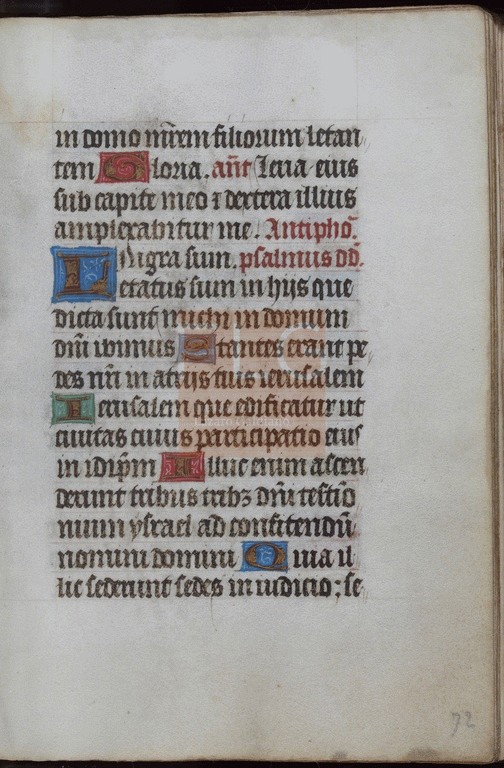 in domo mrem filiorum letan
tem Gloria. ant Leua eius
sub capite meo ⁊ dextera illius
amplexabitur me. Antipho.
Nigra sum. psalmus dd.
Letatus sum in hijs que
dicta sunt michi in domum
dni ibimus Stantes erant pe
des nri in atrijs tuis ierusalem
Ierusalem que edificatur ut
ciuitas cuius participatio eius
in idipm Illuc enim ascen
derunt tribus tribꝫ dni testio
nium ysrael ad confitendu
nomini domini Quia il
lic sederunt sedes in iudicio; se
72